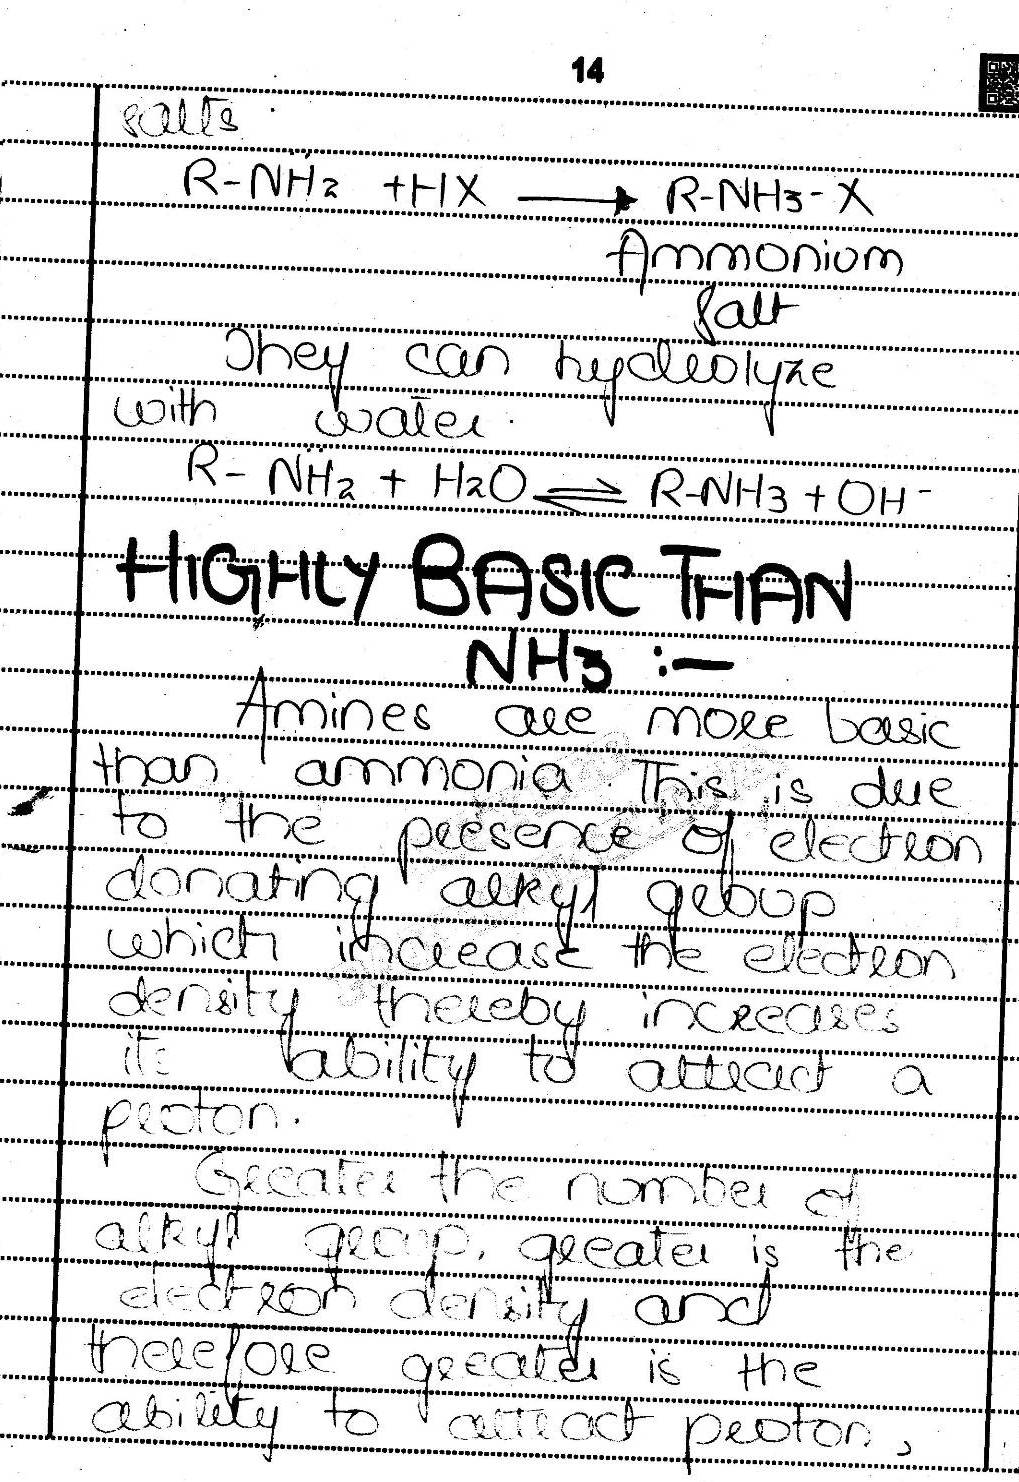 14
salts.
R-N̈H2 +HX ⟶ R-NH3-X
Ammonium
Salt
They can hydrolyze
with water.
R-N̈H2 + H2O ⇌ R-NH3 + OH⁻
HIGHLY BASIC THAN
NH3 :-
Amines are more basic
than ammonia. This is due
to the presence of electron
donating alkyl group
which increase the electron
density thereby increases
its ability to attract a
proton.
Greater the number of
alkyl group, greater is the
electron density and
therefore greater is the
ability to attract proton,